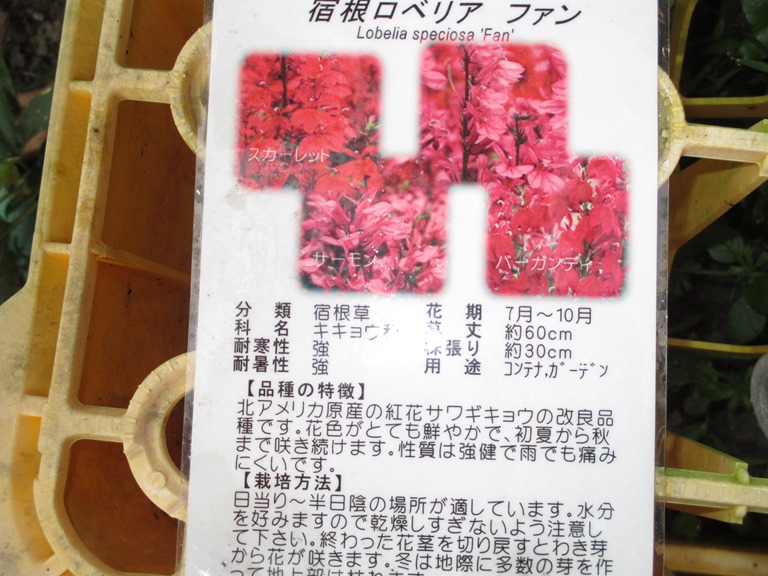 宿根ロベリア ファン
Lobelia speciosa 'Fan'
スカーレット
サーモン
バーガンディ
分 類 宿根草 花 期 7月～10月
科 名 キキョウ科 草 丈 約60cm
耐寒性 強 株張り 約30cm
耐暑性 強 用 途 ｺﾝﾃﾅ,ｶﾞｰﾃﾞﾝ
【品種の特徴】
北アメリカ原産の紅花サワギキョウの改良品
種です。花色がとても鮮やかで、初夏から秋
まで咲き続けます。性質は強健で雨でも痛み
にくいです。
【栽培方法】
日当り～半日陰の場所が適しています。水分
を好みますので乾燥しすぎないよう注意し
て下さい。終わった花茎を切り戻すとわき芽
から花が咲きます。冬は地際に多数の芽を作
って地上部は枯れます